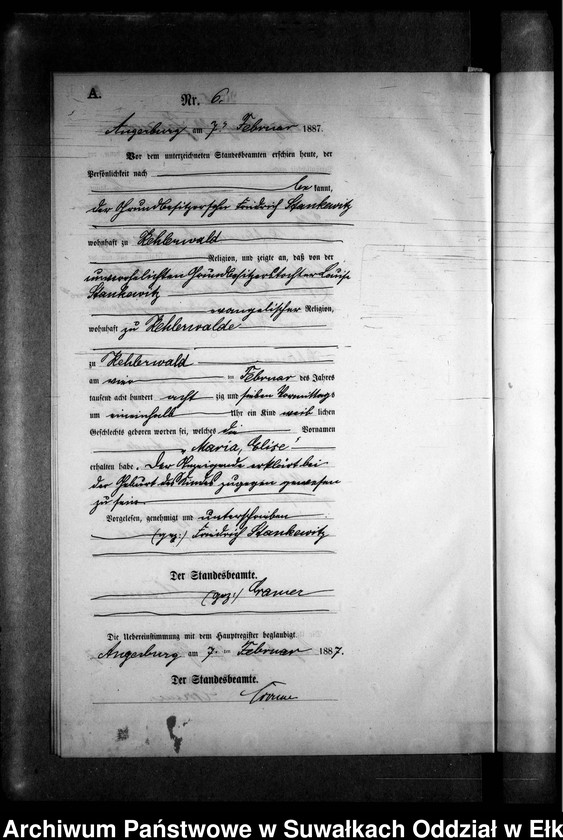 A.
Nr. 6.
Angerburg am 7ten Februar 1887.
Vor dem unterzeichneten Standesbeamten erschien heute, der
Persönlichkeit nach
bekannt,
der Grundbesitzersohn Friedrich Stankewitz
wohnhaft zu Kehlerwald
Religion, und zeigte an, daß von der
unverehelichten Grundbesitzertochter Louise
Stankewitz
evangelischer Religion,
wohnhaft zu Kehlerwalde
zu Kehlerwald
am vier ten Februar des Jahres
tausend acht hundert acht zig und sieben Vormittags
um eineinhalb Uhr ein Kind weib lichen
Geschlechts geboren worden sei, welches die Vornamen
„Maria, Elise"
erhalten habe. Der Anzeigende erklärt bei
der Geburt des Kindes zugegen gewesen
zu sein
Vorgelesen, genehmigt und unterschrieben
(gez:) Friedrich Stankewitz
Der Standesbeamte.
(gez:) Cramer
Die Uebereinstimmung mit dem Hauptregister beglaubigt.
Angerburg am 7. ten Februar 1887.
Der Standesbeamte.
Cramer
Archiwum Państwowe w Suwałkach Oddział w Ełk